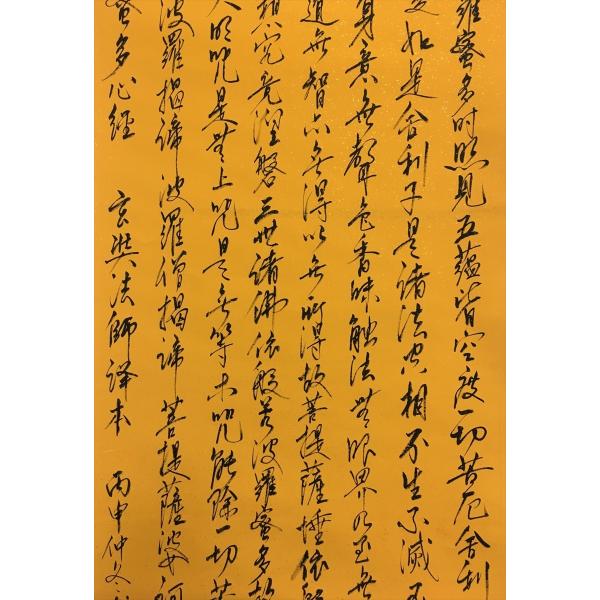 羅蜜多时照見五蘊皆空度一切苦厄舍利
如是舍利子是诸法空相不生不滅
身意无聲色香味触法無眼界乃至无
道无智亦无得以无所得故菩提薩埵依
想究竟涅磐三世诸佛依般若波羅蜜多故
大明咒是無上咒是无等等咒能除一切苦
波羅揭諦波羅僧揭諦菩提薩婆訶
蜜多心經 玄奘法師译本 丙申仲冬